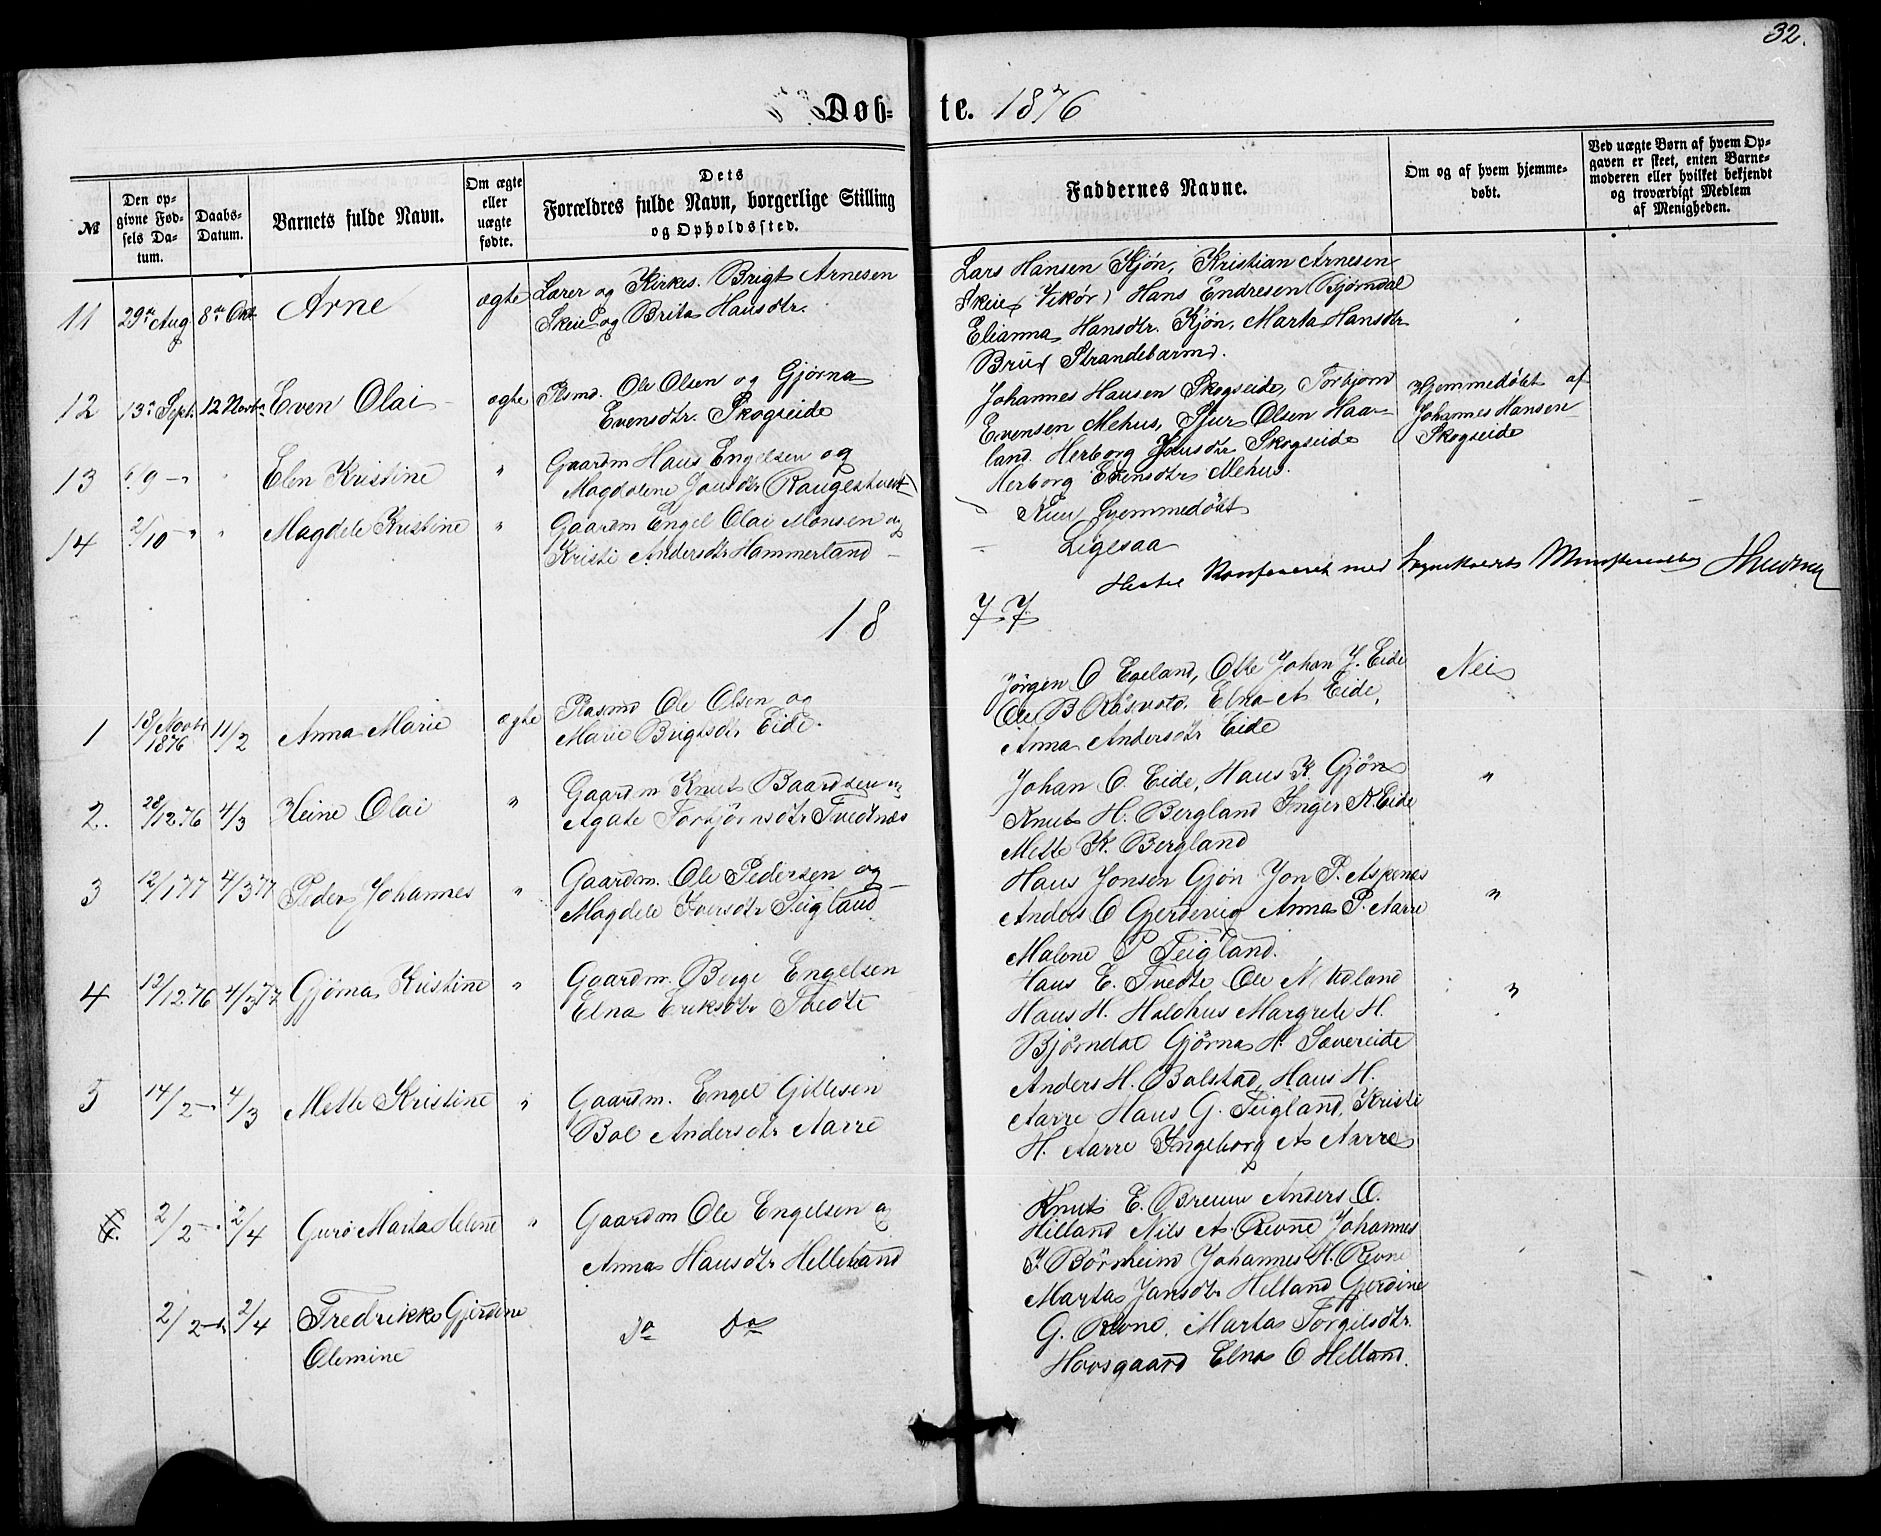 32.
Døb=te. 1876
№
Den opgivne Fødsels Datum.
Daabs-Datum.
Barnets fulde Navn.
Om ægte eller uægte fødte.
Dets Forældres fulde Navn, borgerlige Stilling og Opholdssted.
Faddernes Navne.
Om og af hvem hjemmedøbt.
Ved uægte Børn af hvem Opgaven er skeet, enten Barnemoderen eller hvilket bekjendt og troværdigt Medlem af Menigheden.
11 29de Aug 8de Okt Arne ægte Lærer og Kirkes. Brigt Arnesen
Skeie og Brita Hansdtr.
Lars Hansen Gjøn, Kristian Arnesen
Skeie Vikør) Hans Endresen Bjørndal
Elianna Hansdtr. Gjøn, Marta Hansdtr
Brue Strandebarm.
12 13de Sept. 12 Novbr. Even Olai ægte Plsmd. Ole Olsen og Gjørna
Evensdtr. Skogseide
Johannes Hansen Skogseide, Torbjørn
Evensen Mehus, Sjur Olsen Haa-
land. Herborg Hansdtr Skogseide
Herborg Evensdtr Mehus.
Hjemmedøbt af
Johannes Hansen
Skogseide
13 9 " Elen Kristine " Gaardm Hans Engelsen og
Magdalene Jonsdtr
Kun hjemmedøbt
14 2/10 " " Magdele Kristine " Gaardm Engel Olai Monsen og
Kristi Andersdtr Hammerland
Ligesaa
Konfereret med
18 77
1 18 Novbr 1876 11/2 Anna Marie ægte Plasmd Ole Olsen og
Marie Brigtsdtr Eide.
Jørgen O Eveland, Otte Johan J. Eide
Ole B Elna A Eide,
Anna Andersdtr Eide
Nei
2. 28/12 76 4/3 Heine Olai " Gaardm Knut Baardsen og
Agate Torbjørnsdtr Tvedtnes
Johan O. Eide, Hans K. Gjøn
Knut H. Bergland Inger K. Eide
Mette K. Bergland
"
3 12/1 77 4/3 77 Peder Johannes " Gaardm. Ole Pedersen og
Magdele Iversdtr Teigland
Hans Jonsen Gjøn Jon P. Aspenes
Anders O Gjerdevig Anna P. Aarre
Malene P Teigland.
"
4 13/12 76 4/3 77 Gjørna Kristine " Gaardm. Børge Engelsen
Elna Eriksdtr Tvedte
Hans E. Tvedte Ole N. Udland
Hans H. Haldhus Margrete H.
Bjørndal Gjørna H. Sævereide
"
5 14/2 4/3 Mette Kristine " Gaardm. Engel Gitlesen
Bol Andersdtr Aarre
Anders H. Bolstad, Hans H.
Aarre Hans G. Teigland, Kristi
H. Aarre Ingeborg A Aarre
6. 2/2 2/4 Guro Marta Helene " Gaardm Ole Engelsen og
Anna Hansdtr Helleland
Knut E. Breum Anders O.
Hilland Nils A Revne Johannes
I. Børsheim Johannes H. Revne
Marta Jansdtr Helland Gjerdine
2/2 2/4 Fredrikke Gjerdine
Olemine
do do
G. Revne, Marta Torgilsdtr.
Hovsgaard Elna O Helland.